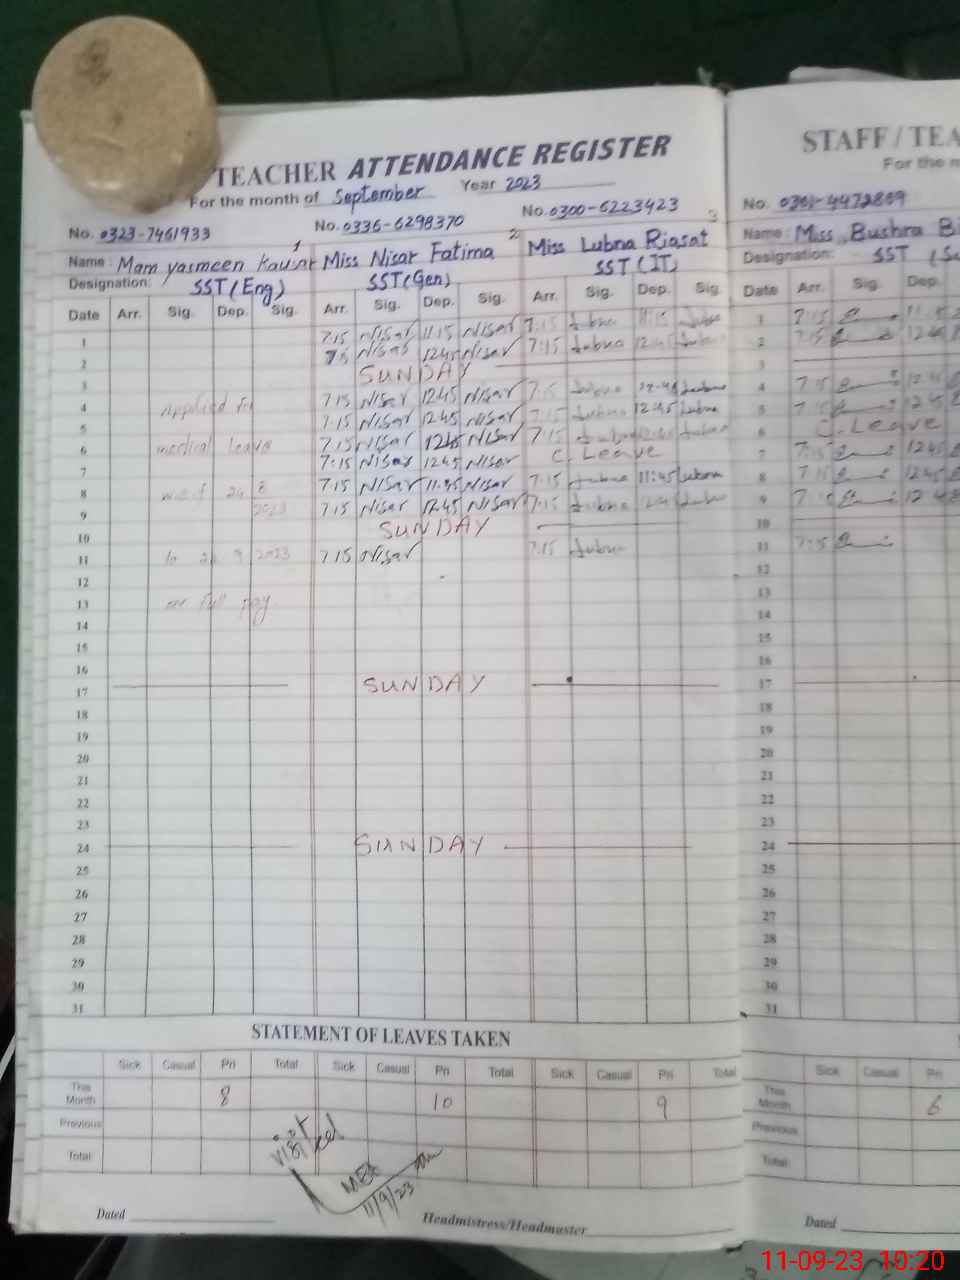 TEACHER ATTENDANCE REGISTER
STAFF / TEA
For the month of September Year 2023
For the m
No. 0323-7461933 No. 0336-6298370 No. 0300-6223423 No. 0301-4472809
1 2 3
Name: Mam Yasmeen Kausar Miss Nisar Fatima Miss Lubna Riasat Name: Miss Bushra Bi
Designation: SST (Eng) SST (Gen) SST (IT) Designation: SST
Date Arr. Sig. Dep. Sig. Arr. Sig. Dep. Sig. Arr. Sig. Dep. Sig. Date Arr. Sig. Dep.
1 7:15 Nisar 11:15 Nisar 7:15 Lubna 11:15 1 7:15
2 Nisar 12:45 Nisar 7:15 Lubna 12:45 Lubna 2 7:15 12:45
3 SUNDAY 3
4 Applied for 7:15 Nisar 12:45 Nisar 7:15 Lubna 12:45 Lubna 4 7:15 12:45
5 7:15 Nisar 12:45 Nisar 7:15 Lubna 12:45 Lubna 5 7:15 12:45
6 medical leave 7:15 Nisar 12:45 Nisar 7:15 Lubna 12:45 Lubna 6 C. Leave
7 7:15 Nisar 12:45 Nisar C. Leave 7 7:15 12:45
8 w.e.f 7:15 Nisar 11:45 Nisar 7:15 Lubna 11:45 Lubna 8 7:15 12:45
9 2023 7:15 Nisar 12:45 Nisar 7:15 Lubna 12:45 Lubna 9 7:15
10 SUNDAY 10
11 to 9 2023 7:15 Nisar 7:15 Lubna 11 7:15
12 12
13 on full pay 13
14 14
15 15
16 16
17 SUNDAY 17
18 18
19 19
20 20
21 21
22 22
23 23
24 SUNDAY 24
25 25
26 26
27 27
28 28
29 29
30 30
31 31
STATEMENT OF LEAVES TAKEN
Sick Casual Pri Total Sick Casual Pri Total Sick Casual Pri Total Sick Casual Pri
This Month 8 10 9 This Month 6
Previous Previous
Total: Total:
visited
MEA
11/9/23
Dated Headmistress/Headmaster Dated
11-09-23 10:20